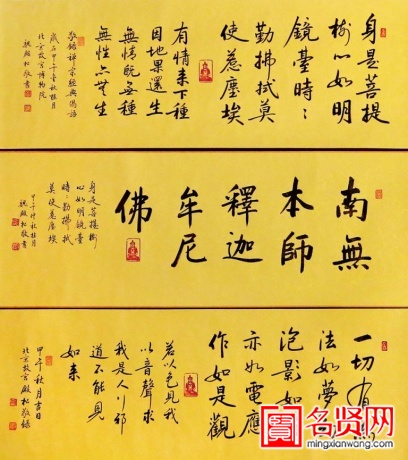 身是菩提
樹心如明
鏡臺時:
勤拂拭莫
使惹塵埃
有情来下種
因地果還生
無情既無種
無性亦無生
敬録禪宗經典偈語
甲午金秋桂月
北京故宮博物院
殿松敬書
南無
本師
釋迦
牟尼
佛
身是菩提樹
心如明鏡臺
時:勤拂拭
莫使惹塵埃
甲午仲秋桂月
殿松敬書
一切有
法如夢
泡影如
亦如電應
作如是觀
若以色見我
以音聲求
我是人行邪
道不能見
如来
甲午秋月吉日
北京故宮殿松敬録
名贤网
mingxianwang.com